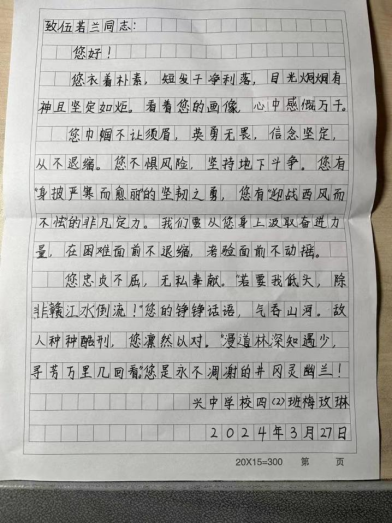 致伍若兰同志：
您好！
您衣着朴素，短发干净利落，目光炯炯有
神且坚定如炬。看着您的画像，心中感慨万千。
您巾帼不让须眉，英勇无畏，信念坚定，
从不退缩。您不惧风险，坚持地下斗争。您有
"身披严寒而愈丽"的坚韧之勇，您有"迎战西风而
不怯的非凡定力。我们要从您身上汲取奋进力
量，在困难面前不退缩，考验面前不动摇。
您忠贞不屈，无私奉献。"若要我低头，除
非赣江水倒流！"您的铮铮话语，气吞山河。敌
人种种酷刑，您凛然以对。"漫道林深知遇少，
寻芳万里几回看"您是永不凋谢的井冈灵幽兰！
兴中学校四(2)班梅玫琳
2024年3月27日
20X15=300 第 页